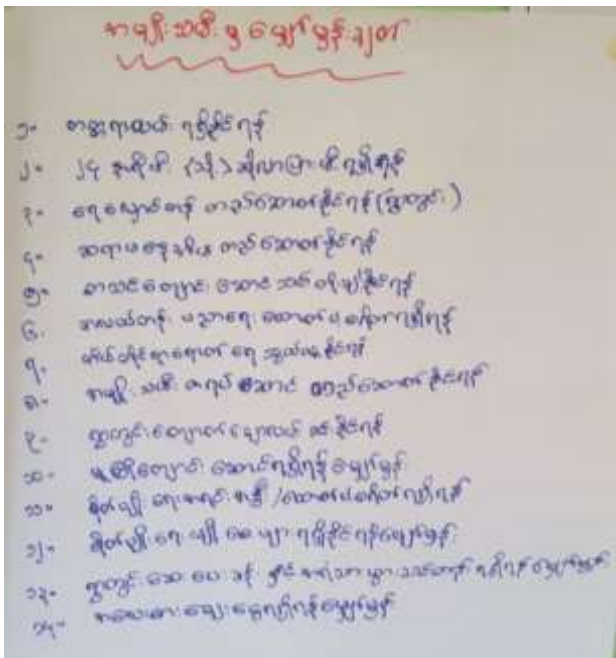 အမျိုးသမီးမှ မျှော်မှန်းချက်
၁။ စက္ကရာထယ် ရရှိနိုင်ရန်
၂။ ၂၄ နာရီမီး (သို့) ဆိုလာပြားမီးရရှိရန်
၃။ ရေလှောင်ကန် တည်ဆောက်နိုင်ရန် (ရွာတွင်း)
၄။ ဆရာမနေအိမ် တည်ဆောက်နိုင်ရန်
၅။ စာသင်ကျောင်း ဆောင်သစ် တိုးချဲ့နိုင်ရန်
၆။ အလယ်တန်း ပညာရေး ထောက်ပံ့ကြေး ရရှိရန်
၇။ အိမ်တိုင်ရာရောက် ရေသွယ်ယူနိုင်ရန်
၈။ အမျိုးသမီး အရပ်ဆောင် တည်ဆောက်နိုင်ရန်
၉။ ရွာတွင်း ကျောက်ချောလမ်း ခင်းနိုင်ရန်
၁၀။ မူကြိုကျောင်း ဆောင်ရရှိရန် မျှော်မှန်း
၁၁။ စိုက်ပျိုးရေး အရင်းအနှီး / ထောက်ပံ့ကြေး ရရှိရန်
၁၂။ စိုက်ပျိုးရေး မျိုးစေ့များ ရရှိနိုင်ရန် မျှော်မှန်း
၁၃။ ရွာတွင်း ဆေးပေးခန်း နှင့် သားဖွားသင်တန်း ရရှိရန် မျှော်မှန်း
၁၄။ အသေးစားချေးငွေရရှိရန် မျှော်မှန်း